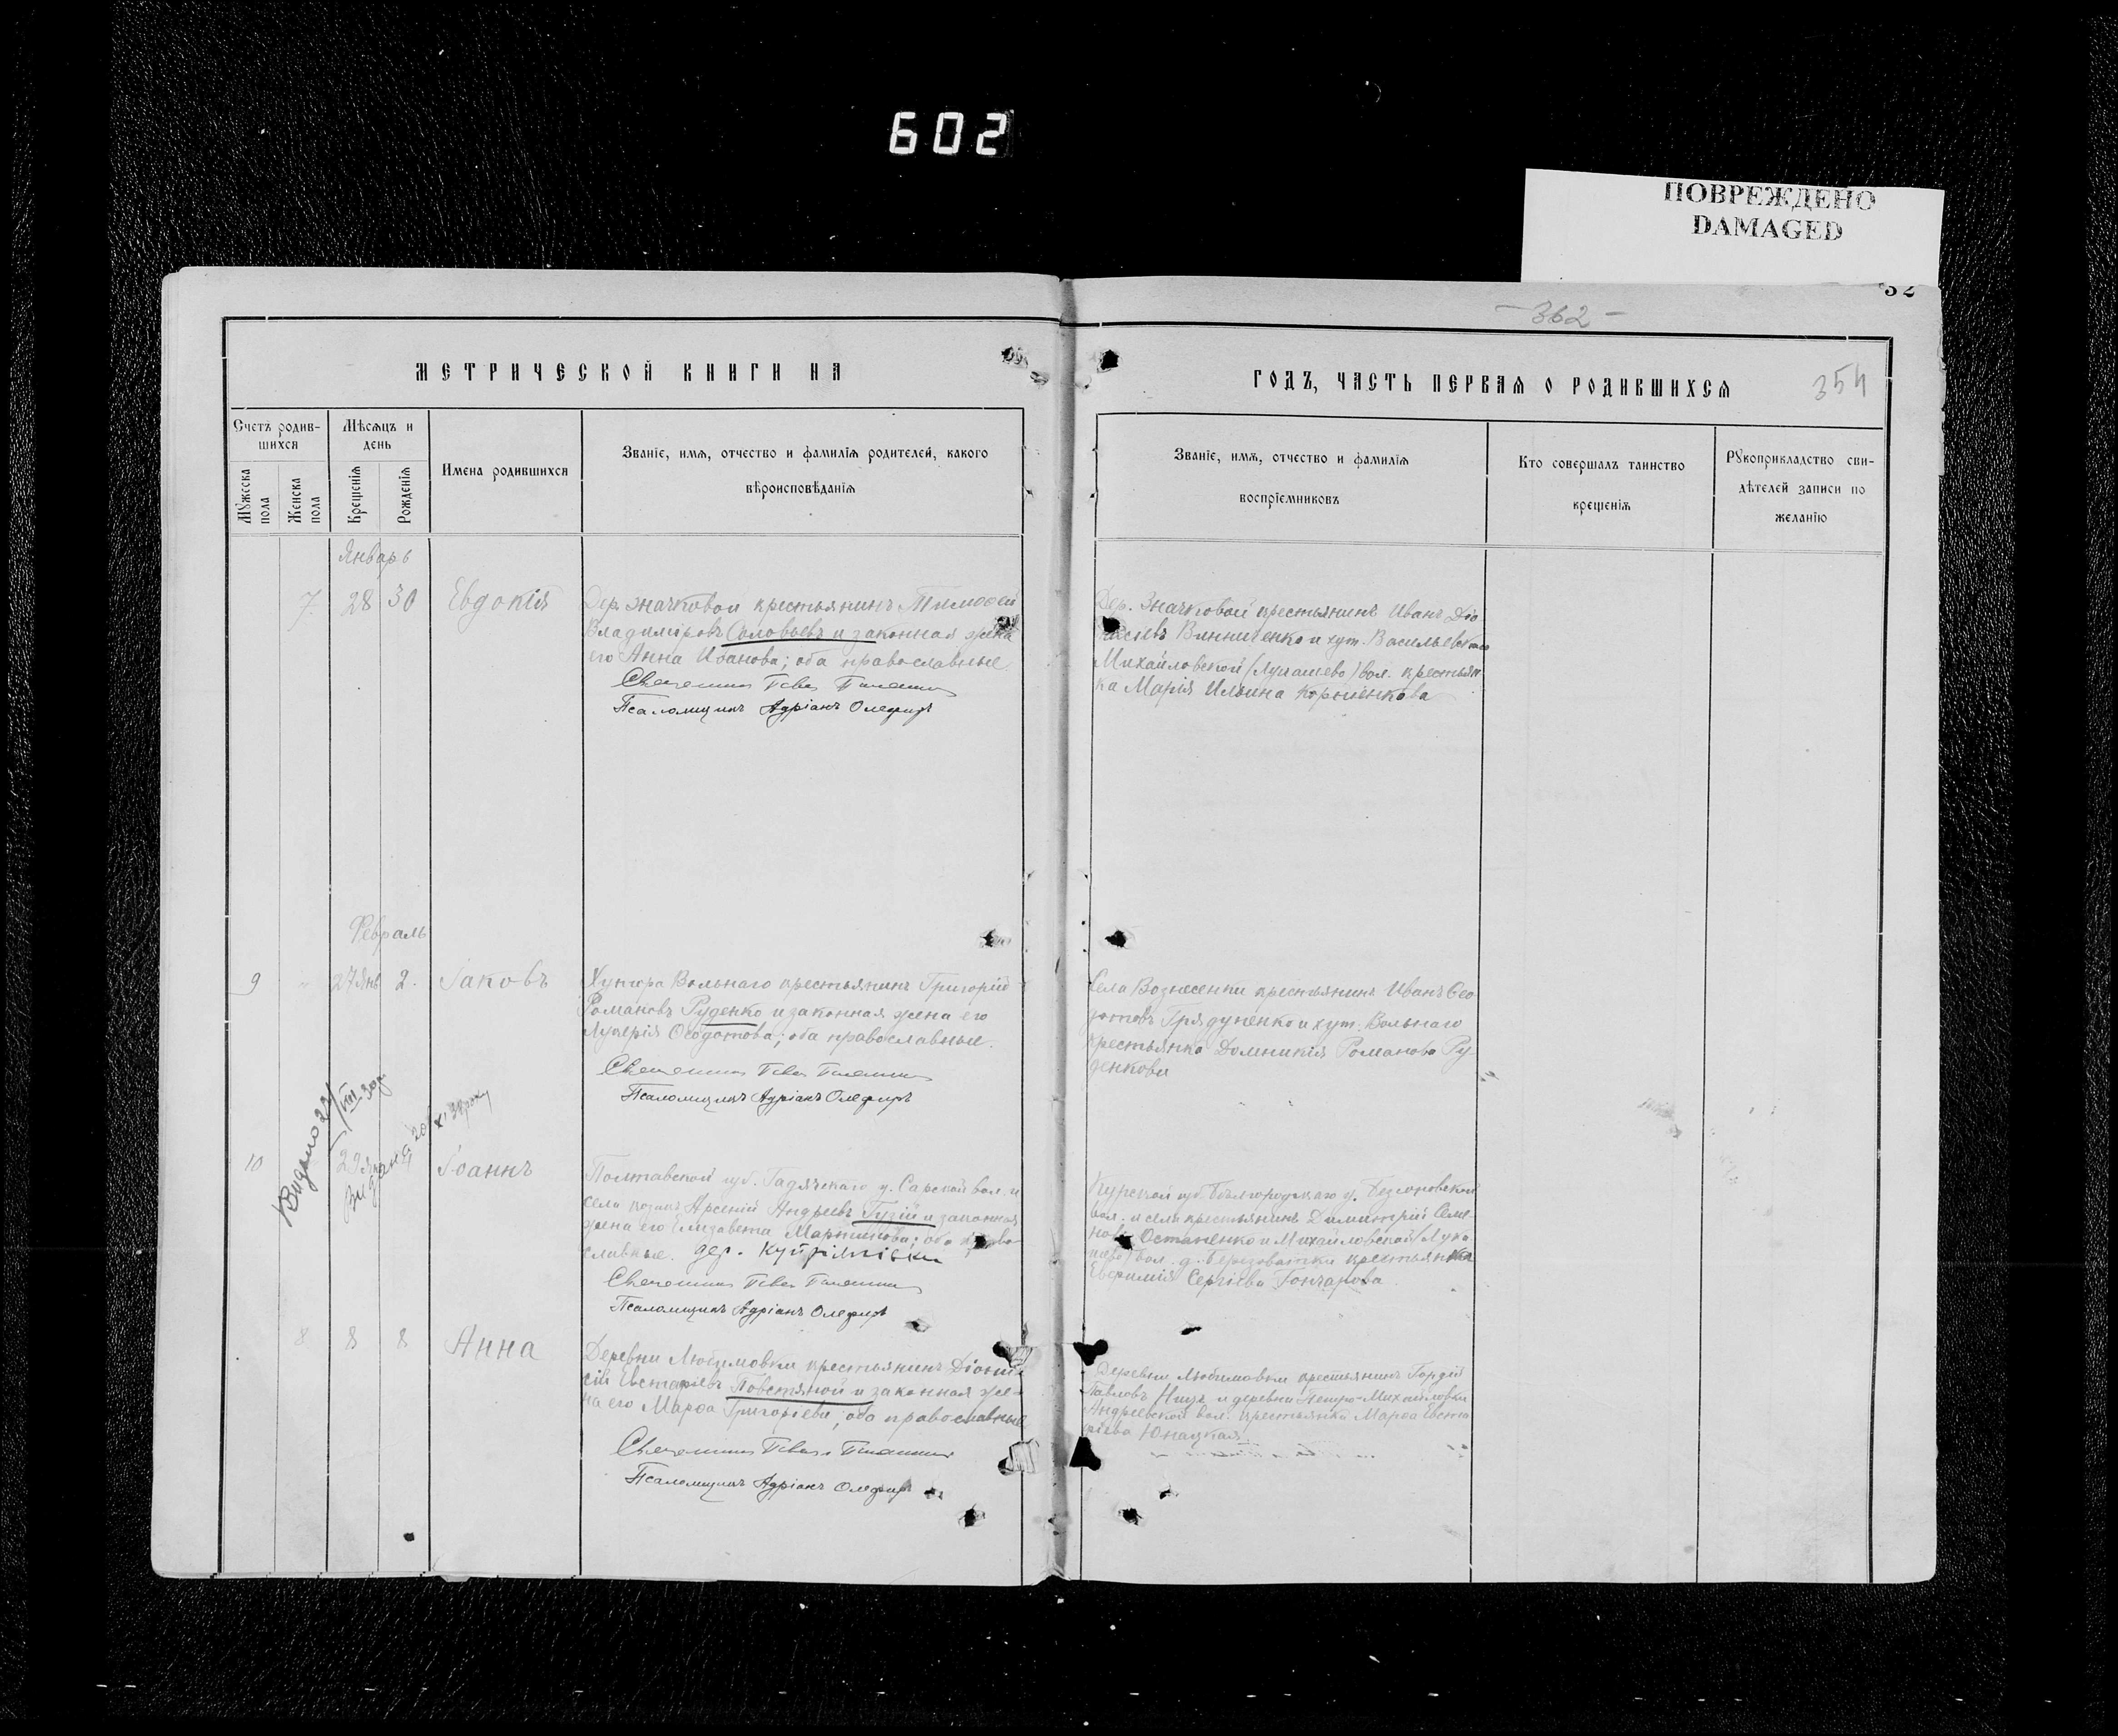 602
ПОВРЕЖДЕНО
DAMAGED
32
- 362 -
МЕТРИЧЕСКОЙ КНИГИ НА
ГОДЪ, ЧАСТЬ ПЕРВАЯ О РОДИВШИХСЯ
354
Счетъ родив-
шихся
Мѣсяцъ и
день
Имена родившихся
Званіе, имя, отчество и фамилія родителей, какого
вѣроисповѣданія
Мужеска
пола
Женска
пола
Крещенія
Рожденія
Званіе, имя, отчество и фамилія
воспріемниковъ
Кто совершалъ таинство
крещенія
Рукоприкладство сви-
дѣтелей записи по
желанію
Январь
7 28 30 Евдокія
Дер. Значковой крестьянинъ Тимофей
Владиміровъ Соловьевъ и законная жена
его Анна Иванова; оба православные
Священникъ
Псаломщикъ Адріанъ Олефиръ
Дер. Значковой крестьянинъ Иванъ Діо
нисіевъ Винниченко и хут. Васильевскаго
Михайловской (Лукашево) вол. крестьян
ка Марія Ильина Корніенкова
Февраль
9 27 Янв 2. Іаковъ
Хутора Вольнаго крестьянинъ Григорій
Романовъ Руденко и законная жена его
Лукерія Ѳеодотова; оба православные.
Священникъ
Псаломщикъ Адріанъ Олефиръ
Села Вознесенки крестьянинъ Иванъ Ѳео
дотовъ Грядуненко и хут. Вольнаго
крестьянка Домникія Романова Ру
денкова
Видано 22/VIII 30р
10 29 Янв Іоаннъ
Видана 20/XI 38 року
Полтавской губ. Гадячскаго у. Сарской вол. и
села козакъ Арсеній Андреевъ Гузій и законная
жена его Елизавета Мартинова; оба право
славные. дер. Купріянівки
Священникъ
Псаломщикъ Адріанъ Олефиръ
Курской губ. Бѣлгородскаго у. Безсоновской
вол. и села крестьянинъ Димитрій Семе
новъ Остапенко и Михайловской (Лука
шево) вол. д. Березоватки крестьянка
Евфимія Сергіева Гончарова
8 8 8 Анна
Деревни Любимовки крестьянинъ Діони
сій Евстафіевъ Повстяной и законная же-
на его Марѳа Григоріева; оба православные
Священникъ
Псаломщикъ Адріанъ Олефиръ
Деревни Любимовки крестьянинъ Гордій
Павловъ и деревни Петро-Михайловки
Андреевской вол. крестьянка Марѳа Евста
фіева Юнацкая